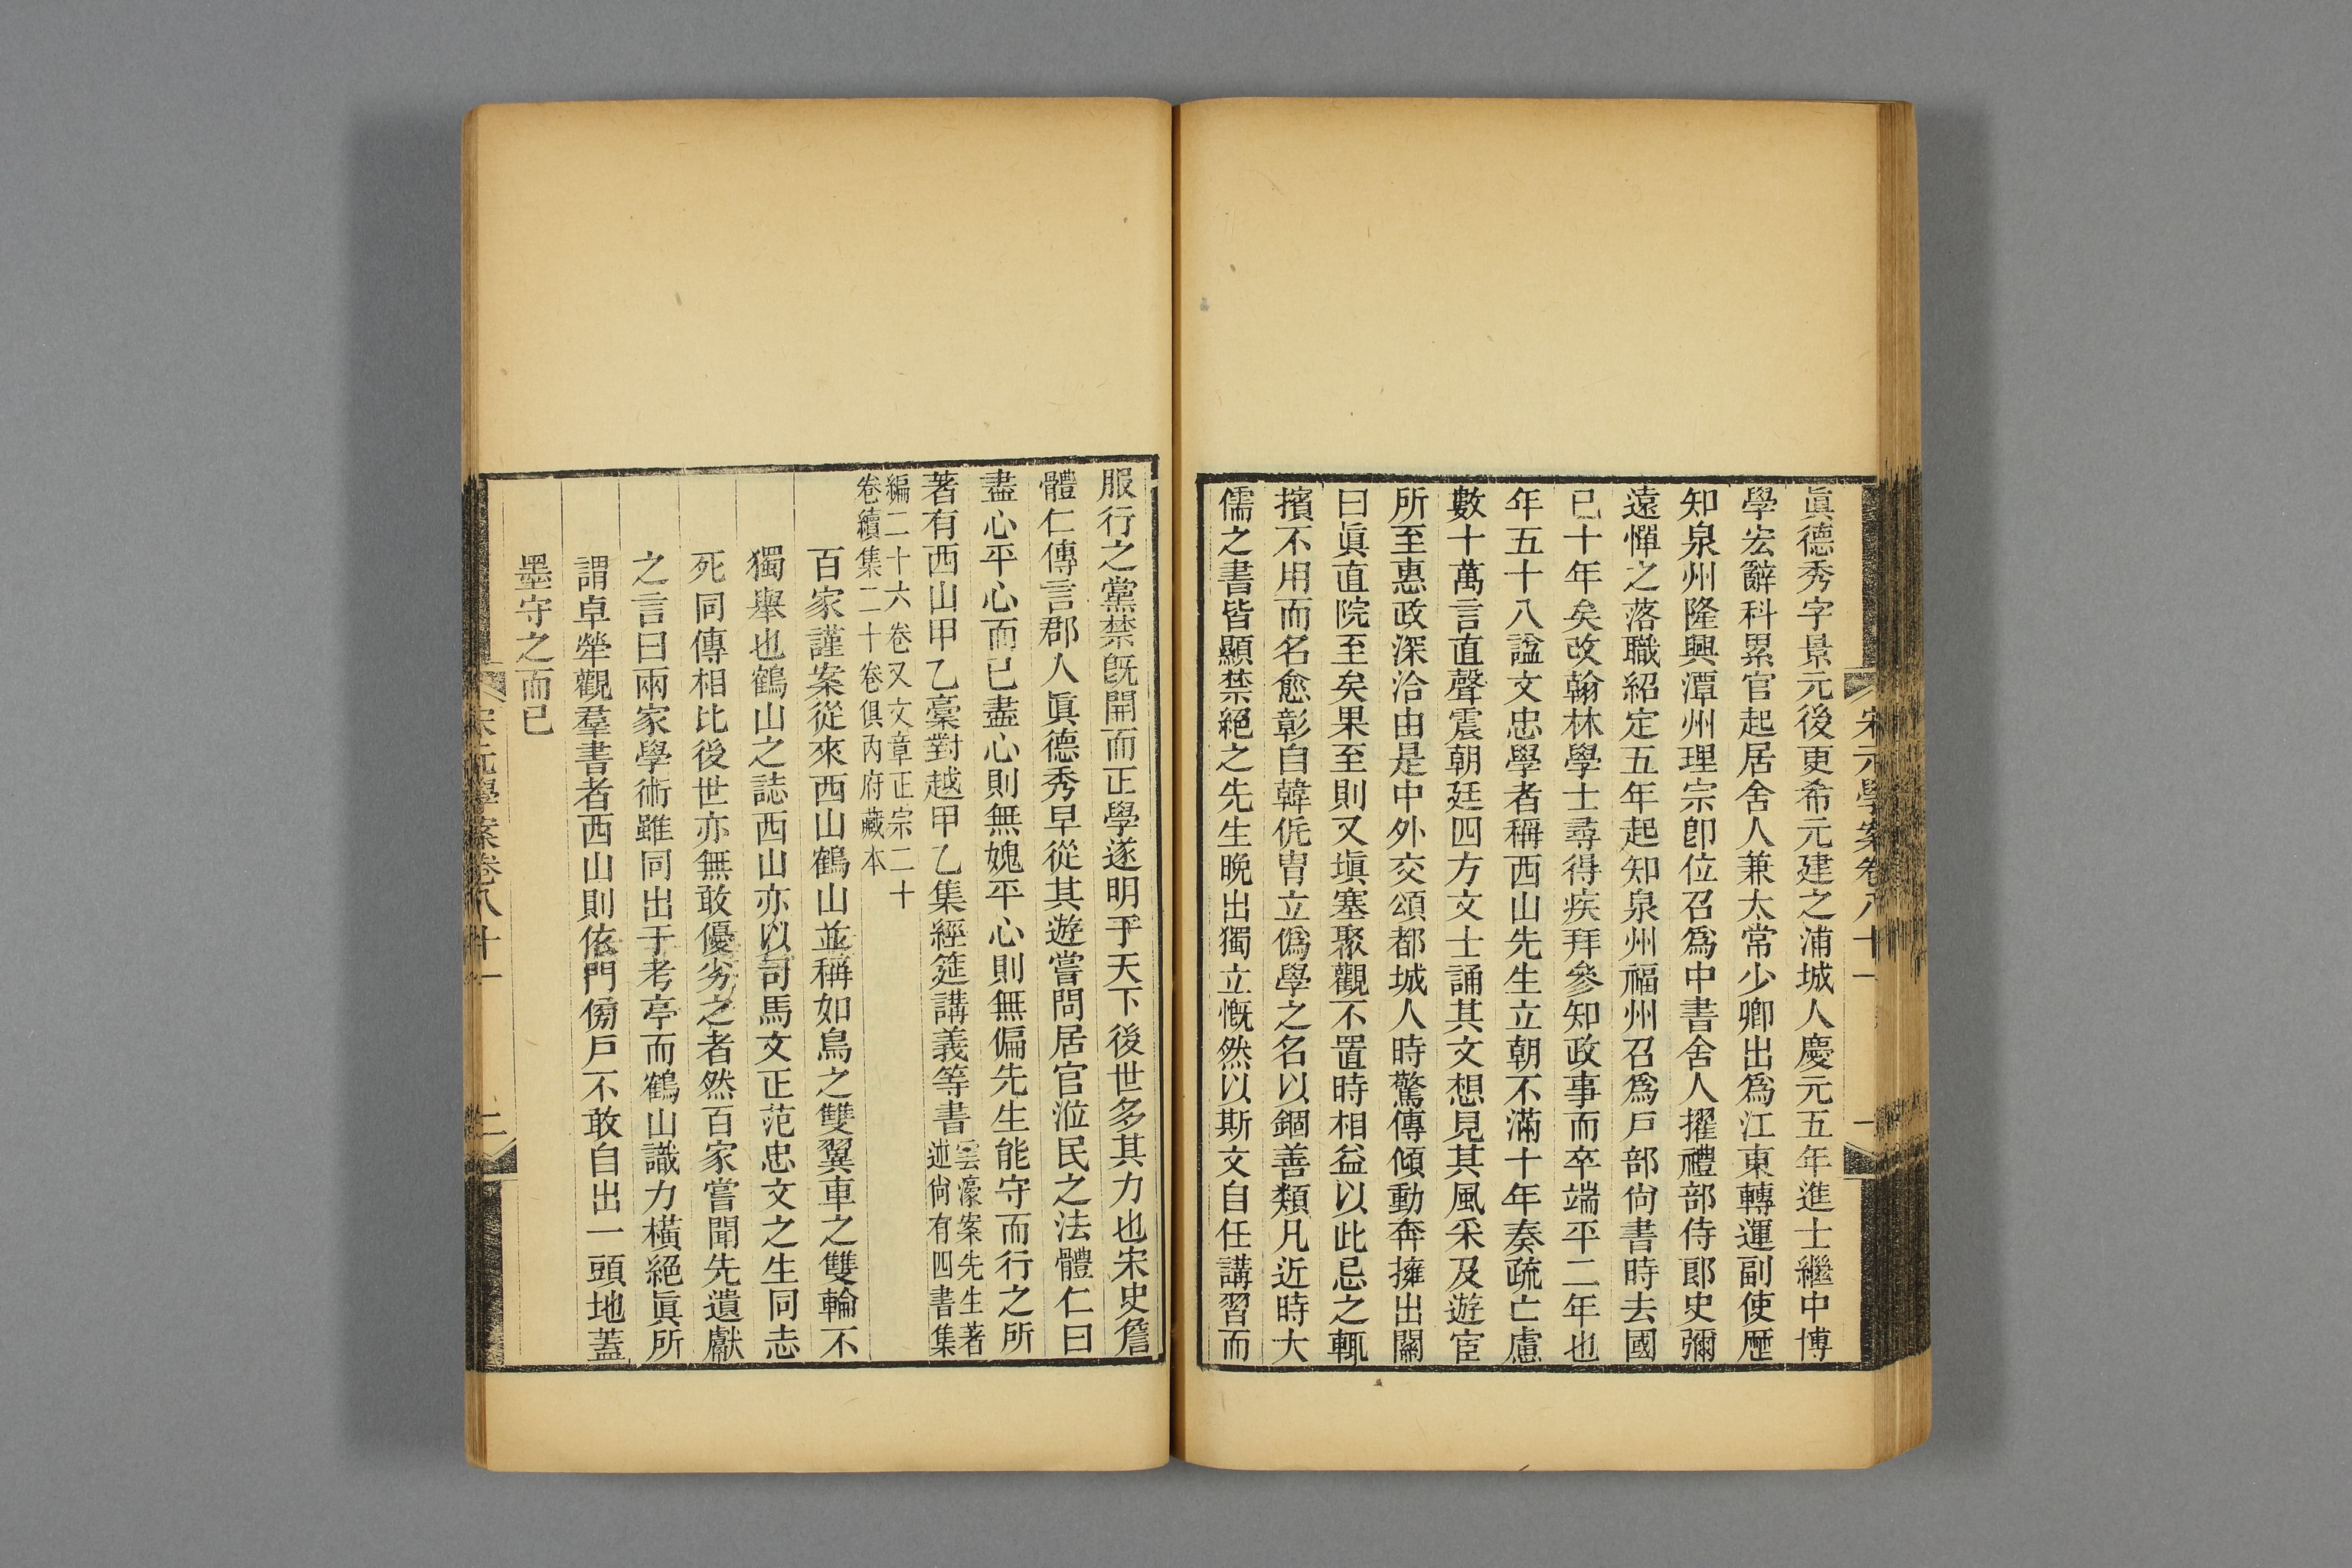 宋元學案卷八十一
一
眞德秀字景元後更希元建之浦城人慶元五年進士繼中博
學宏辭科累官起居舍人兼太常少卿出爲江東轉運副使歷
知泉州隆興潭州理宗卽位召爲中書舍人擢禮部侍郎史彌
遠憚之落職紹定五年起知泉州福州召爲戶部尙書時去國
已十年矣改翰林學士尋得疾拜參知政事而卒端平二年也
年五十八諡文忠學者稱西山先生立朝不滿十年奏疏亡慮
數十萬言直聲震朝廷四方文士誦其文想見其風采及遊宦
所至惠政深洽由是中外交頌都城人時驚傳傾動奔擁出關
曰眞直院至矣果至則又塡塞聚觀不置時相益以此忌之輒
擯不用而名愈彰自韓侂胄立僞學之名以錮善類凡近時大
儒之書皆顯禁絕之先生晚出獨立慨然以斯文自任講習而
服行之黨禁旣開而正學遂明乎天下後世多其力也宋史詹
體仁傳言郡人眞德秀早從其遊嘗問居官涖民之法體仁曰
盡心平心而已盡心則無媿平心則無偏先生能守而行之所
著有西山甲乙稾對越甲乙集經筵講義等書雲濠案先生著
述尙有四書集
編二十六卷又文章正宗二十
卷續集二十卷俱內府藏本
百家謹案從來西山鶴山並稱如鳥之雙翼車之雙輪不
獨舉也鶴山之誌西山亦以司馬文正范忠文之生同志
死同傳相比後世亦無敢優劣之者然百家嘗聞先遺獻
之言曰兩家學術雖同出于考亭而鶴山識力橫絕眞所
謂卓犖觀羣書者西山則依門傍戶不敢自出一頭地蓋
墨守之而已
宋元學案卷八十一
二